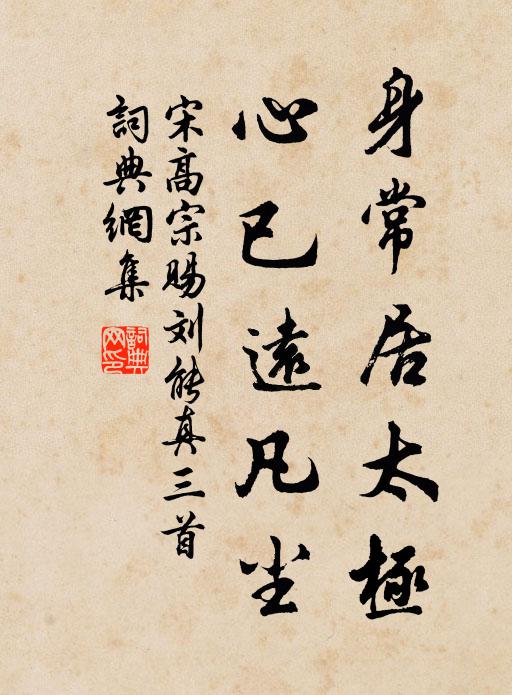 身常居太極
心已遠凡尘
宋高宗賜刘能真三首
詞典網集
詞典网印